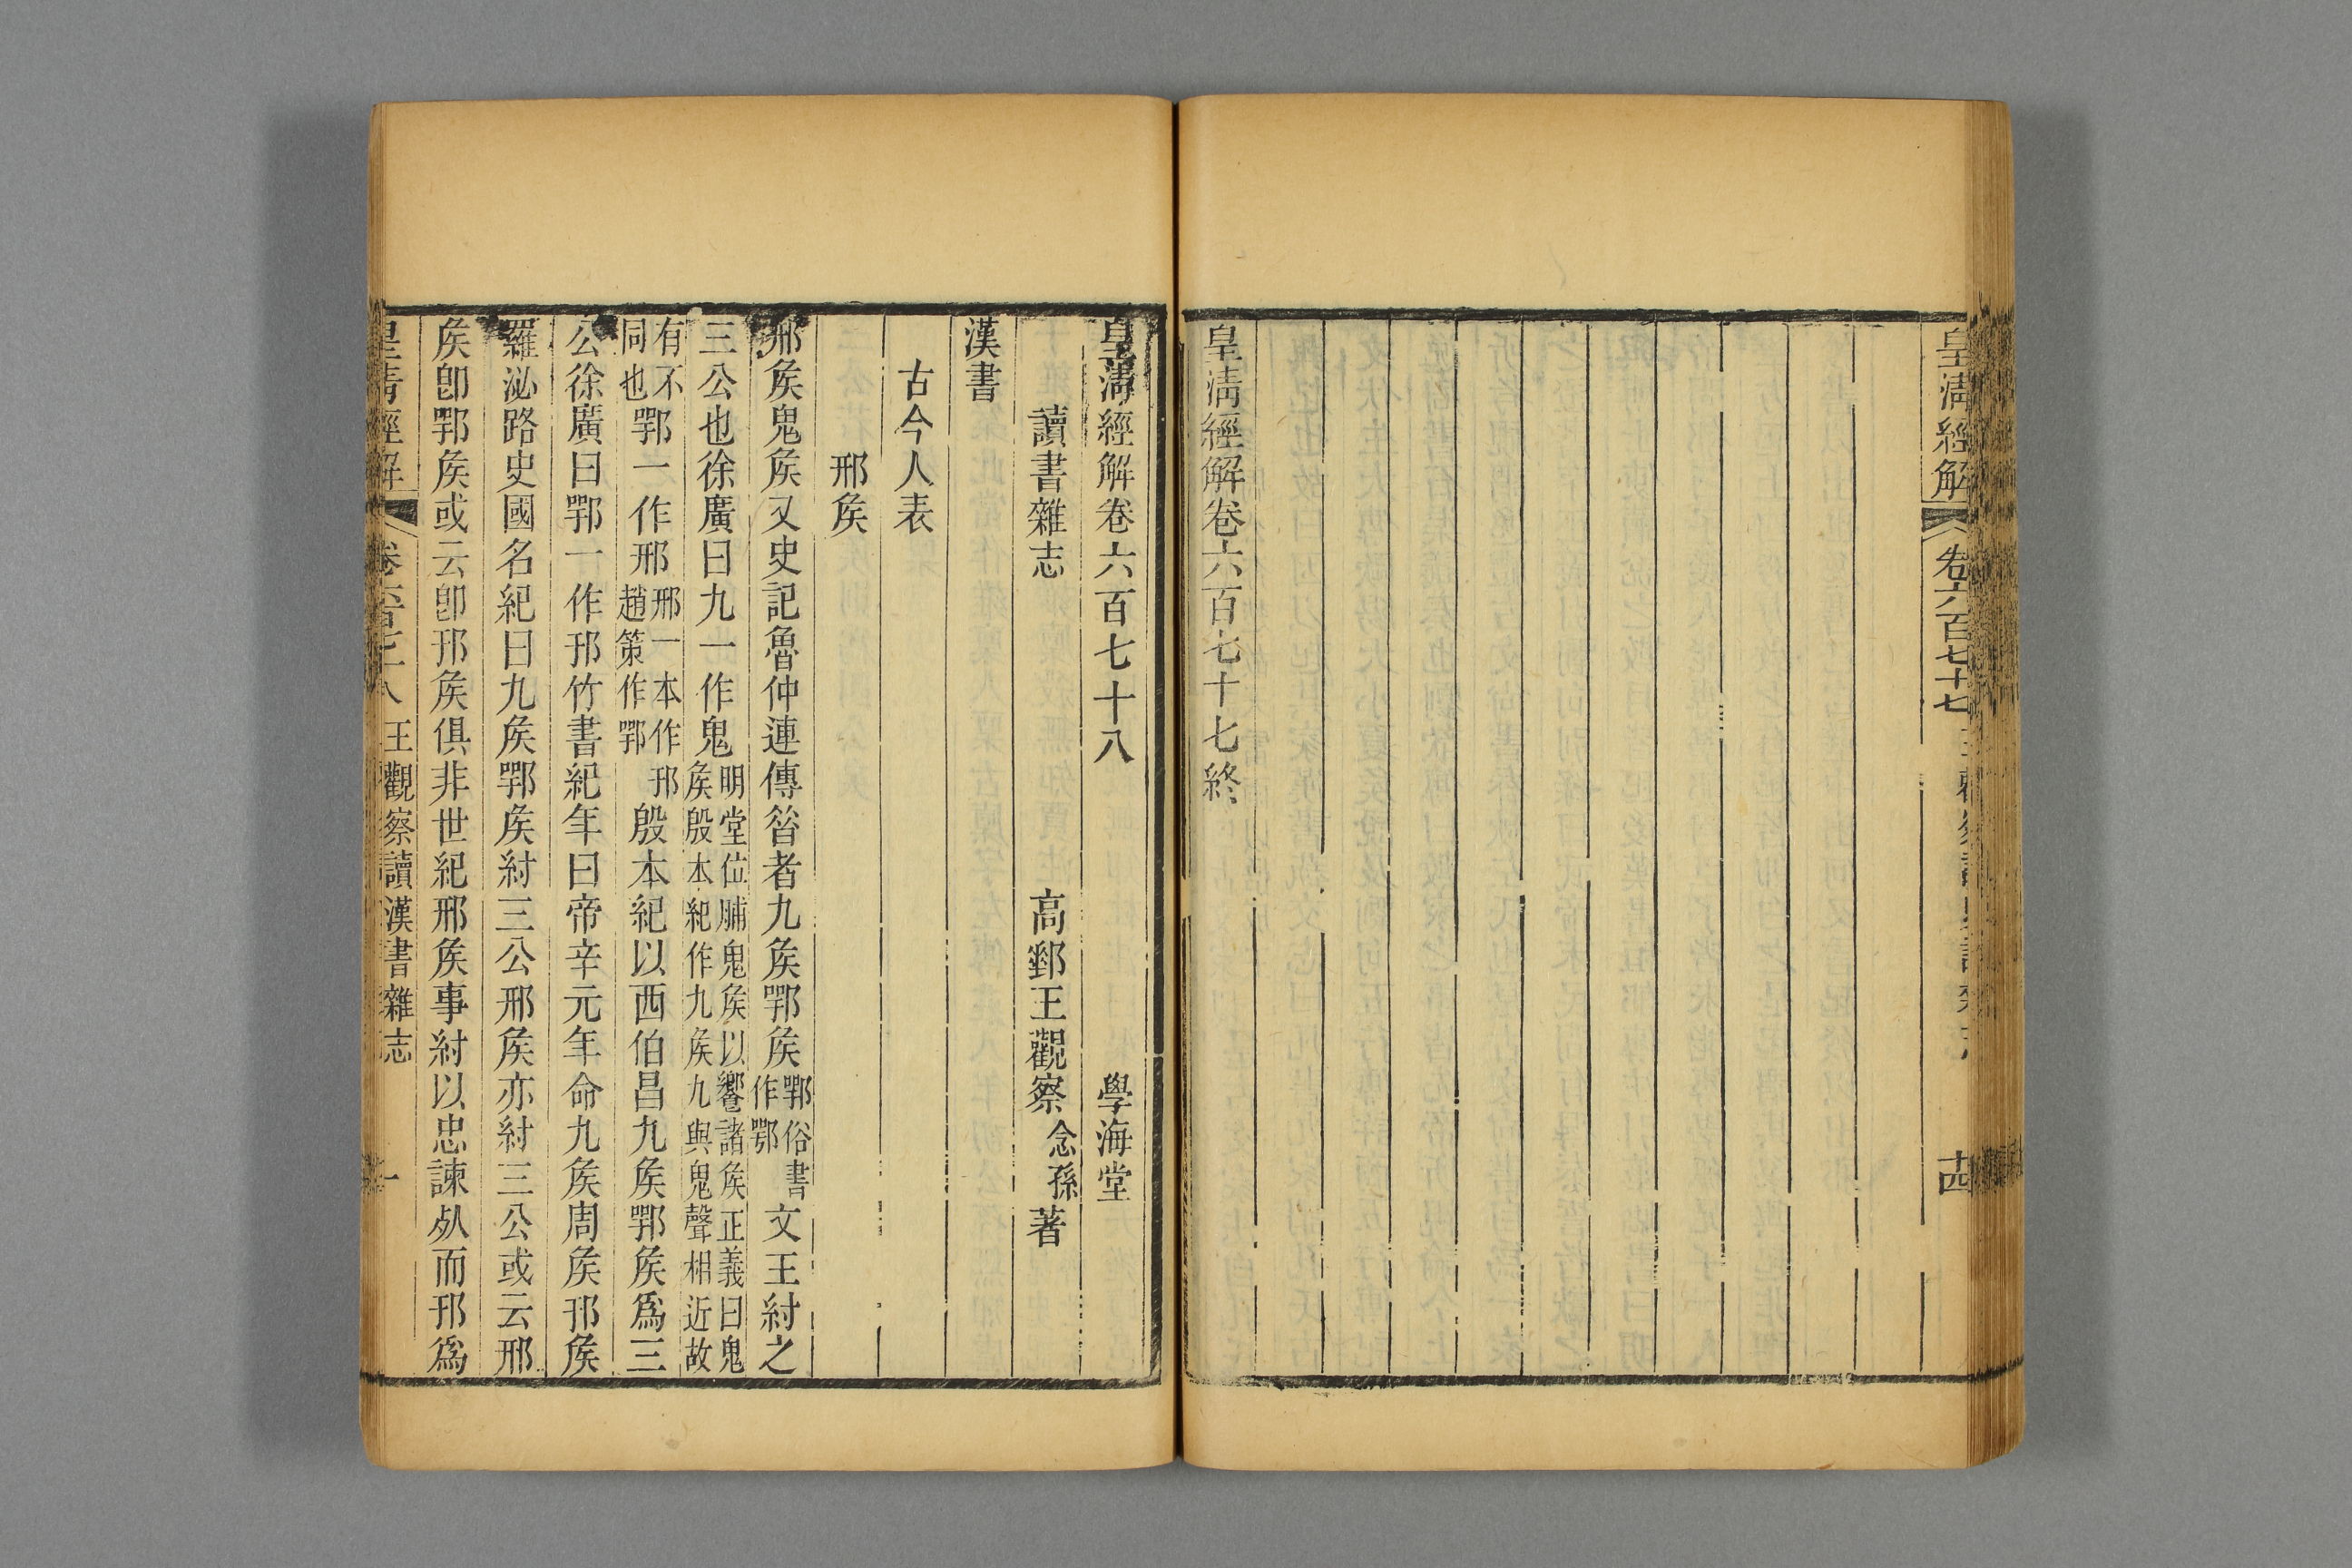 皇清經解
卷六百七十七
十四
皇清經解卷六百七十七終
皇清經解卷六百七十八 學海堂
讀書雜志 高郵王觀察念孫著
漢書
古今人表
邢矦
邢矦鬼矦又史記魯仲連傳昝者九矦鄂矦鄂俗書作鄂文王紂之
三公也徐廣曰九一作鬼明堂位脯鬼矦以饗諸矦正義曰鬼矦殷本紀作九矦九與鬼聲相近故
有不同也鄂一作邢邢一本作邘趙策作鄂殷本紀以西伯昌九矦鄂矦爲三
公徐廣曰鄂一作邘竹書紀年曰帝辛元年命九矦周矦邘矦
羅泌路史國名紀曰九矦鄂矦紂三公邢矦亦紂三公或云邢
矦卽鄂矦或云卽邘矦俱非世紀邢矦事紂以忠諫死而邘爲
皇清經解
卷六百七十八 王觀察讀漢書雜志
一